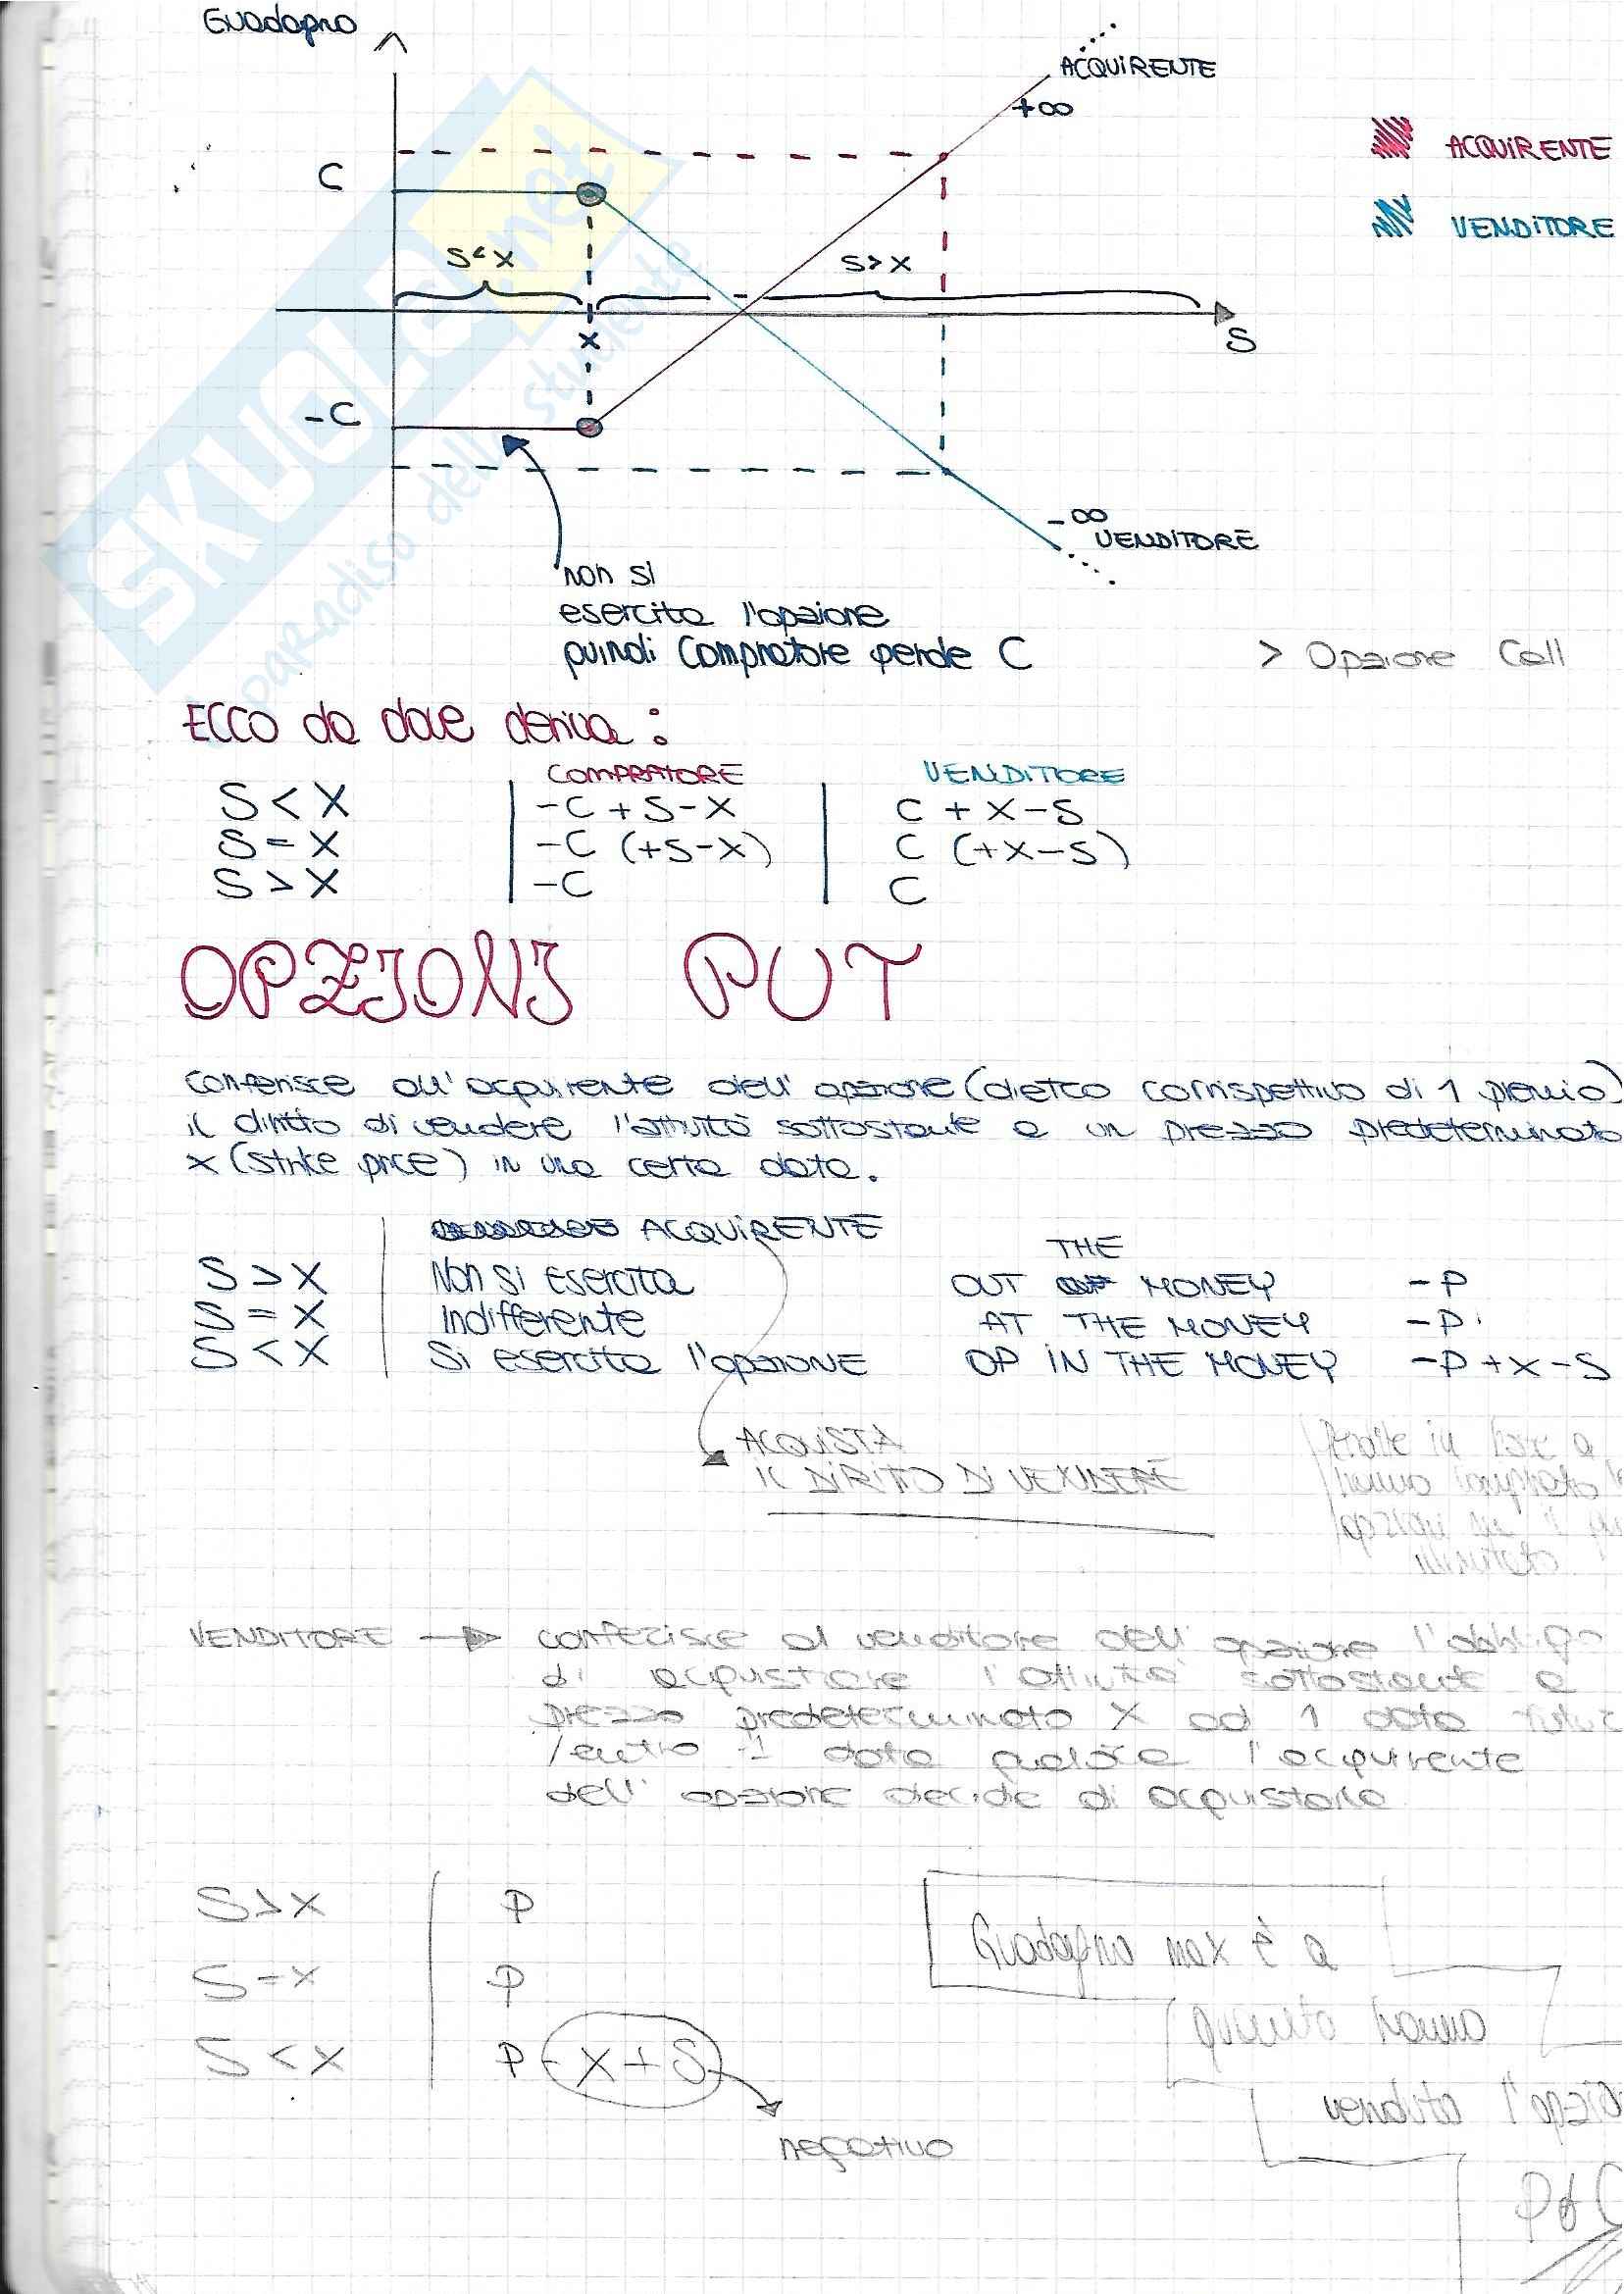 Guadagno
ACQUIRENTE
+∞
ACQUIRENTE
C
VENDITORE
S<X
S>X
X
S
-C
-∞
VENDITORE
non si
esercita l'opzione
quindi Compratore perde C
> Opzione Call
SKUOLA.net
il paradiso dello studente
ECCO da dove deriva:
COMPRATORE VENDITORE
S < X -C + S-X C + X-S
S = X -C (+S-X) C (+X-S)
S > X -C C
OPZIONI PUT
Conferisce all'acquirente dell'opzione (dietro corrispettivo di 1 premio)
il diritto di vendere l'attività sottostante a un prezzo predeterminato
X (strike price) in una certa data.
ACQUIRENTE
THE
S > X Non si esercita OUT OF MONEY -P
S = X Indifferente AT THE MONEY -P
S < X Si esercita l'opzione OP IN THE MONEY -P+X-S
ACQUISTA
IL DIRITTO DI VENDERE
in base a
hanno comprato
opzioni
VENDITORE → conferisce al venditore dell'opzione l'obbligo
di acquistare l'attività sottostante a
prezzo predeterminato X ad 1 data futur
/entro 1 data qualora l'acquirente
dell'opzione decide di acquistarla
S>X P
S=X P
S<X P-X+S
negativo
Guadagno max è a
quanto hanno
venduto l'opzio